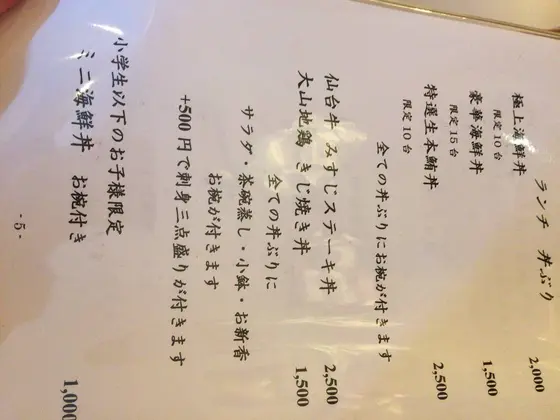 ランチ 丼ぶり
極上海鮮丼 2,000
限定10台
豪華海鮮丼 1,500
限定15台
特選生本鮪丼 2,500
限定10台
全ての丼ぶりにお椀が付きます
仙台牛 みすじステーキ丼 2,500
大山地鶏 きじ焼き丼 1,500
全ての丼ぶりに
サラダ・茶碗蒸し・小鉢・お新香
お椀が付きます
+500円で刺身三点盛りが付きます
小学生以下のお子様限定
ミニ海鮮丼 お椀付き 1,000
-5-